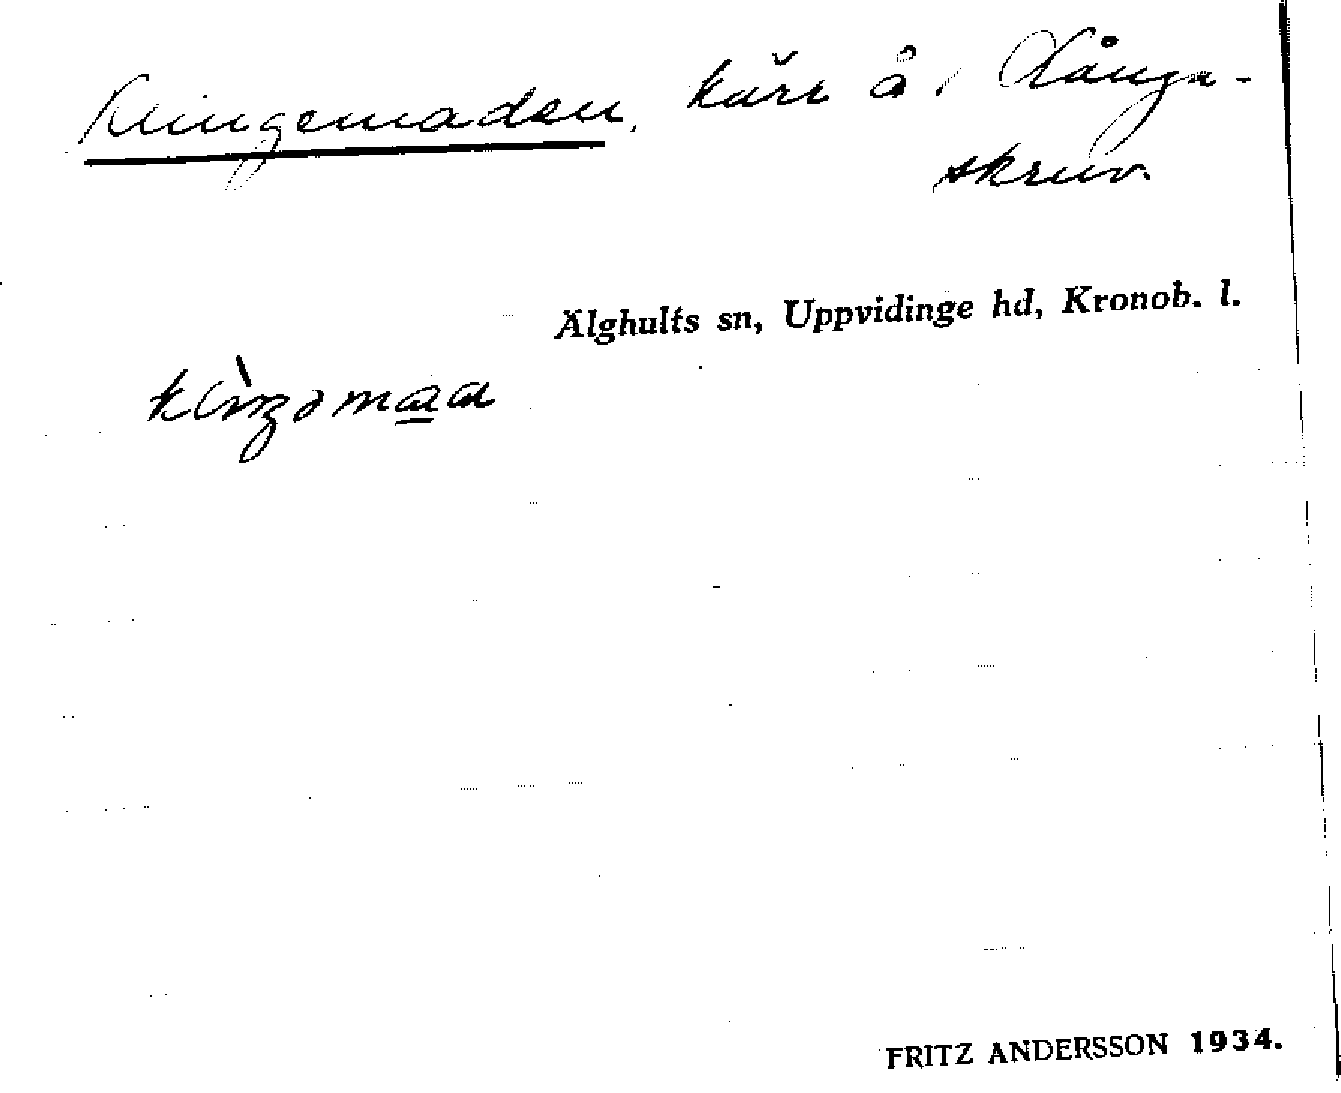 Klingemaden, kärr å, Långa-
skruv.
Älghults sn, Uppvidinge hd, Kronob. l.
FRITZ ANDERSSON 1934.